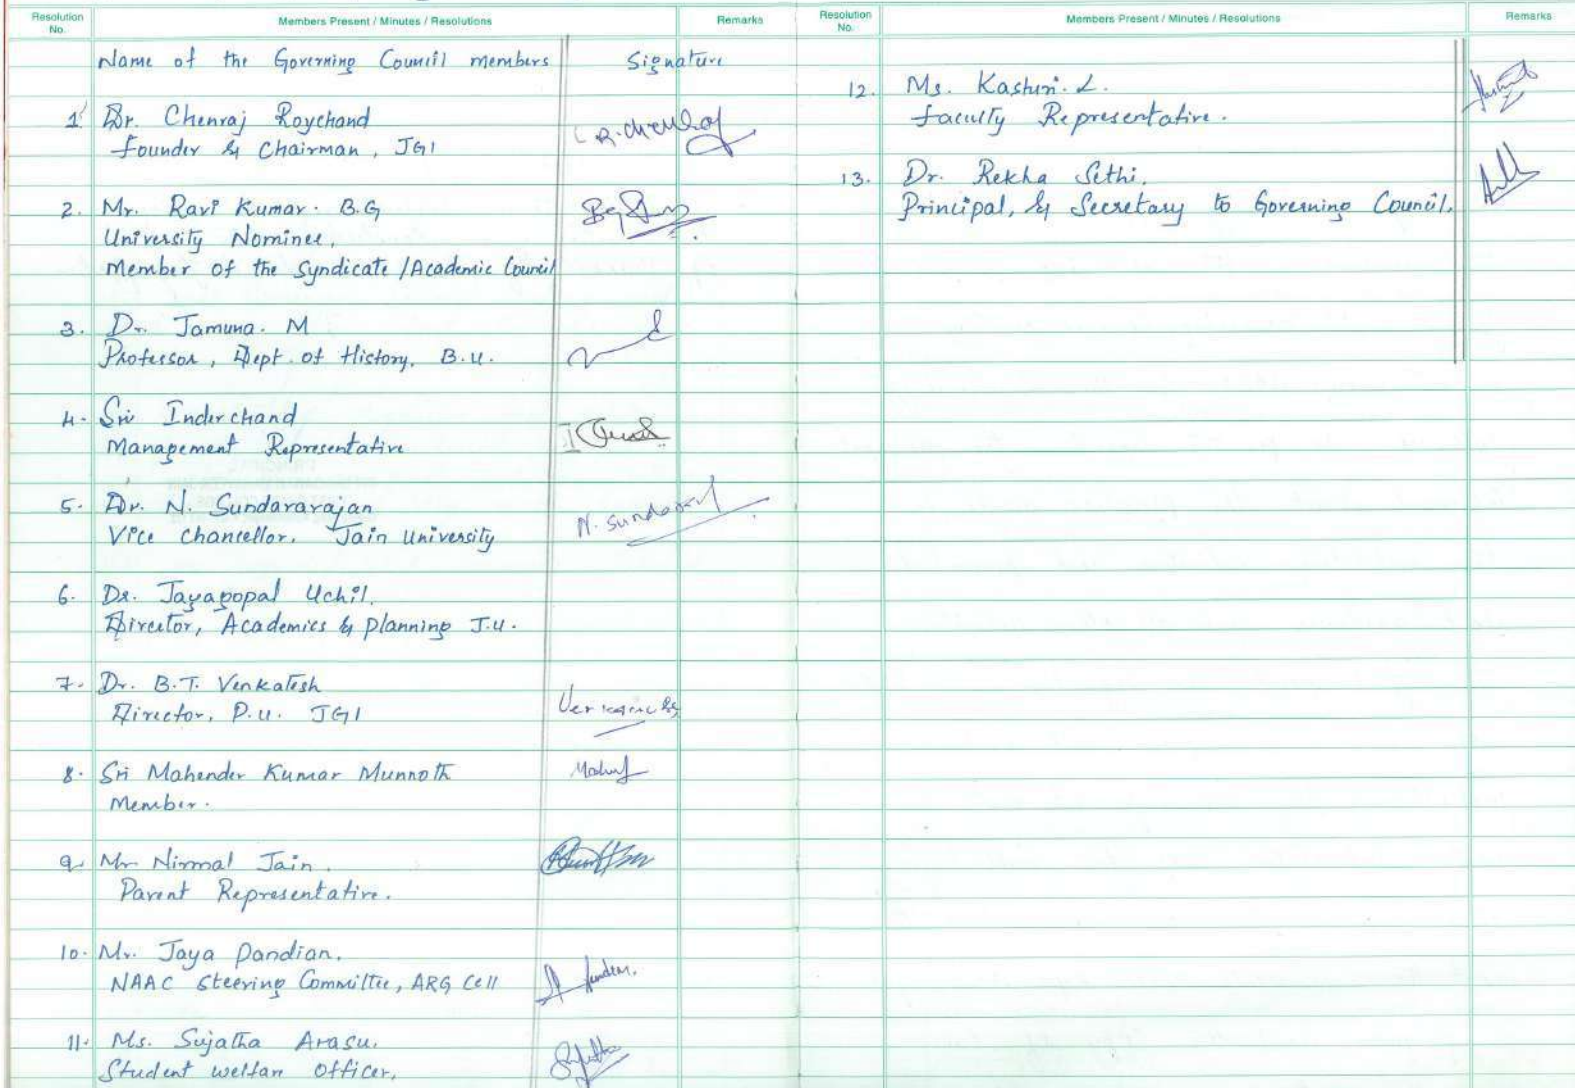 Resolution No. Members Present / Minutes / Resolutions Remarks
Name of the Governing Council members Signature
1. Dr. Chenraj Roychand
Founder & Chairman, JGI
2. Mr. Ravi Kumar. B.G
University Nominee,
Member of the Syndicate / Academic Council
3. Dr. Jamuna. M
Professor, Dept. of History, B.U.
4. Sri Inderchand
Management Representative
5. Dr. N. Sundararajan N. Sundararaj
Vice Chancellor. Jain University
6. Dr. Jayagopal Uchil.
Director, Academics & Planning J.U.
7. Dr. B.T. Venkatesh
Director, P.U. JGI
8. Sri Mahender Kumar Munnoth
Member.
9. Mr Nirmal Jain.
Parent Representative.
10. Mr. Jaya Pandian.
NAAC Steering Committee, ARG Cell
11. Ms. Sujatha Arasu.
Student welfare Officer,
Resolution No. Members Present / Minutes / Resolutions Remarks
12. Ms. Kasturi. L.
Faculty Representative.
13. Dr. Rekha Sethi.
Principal, & Secretary to Governing Council.